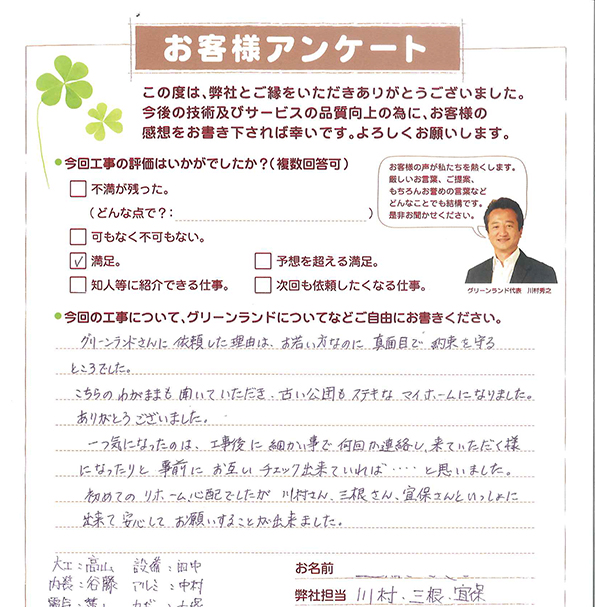 お客様アンケート
この度は、弊社とご縁をいただきありがとうございました。
今後の技術及びサービスの品質向上の為に、お客様の
感想をお書き下されば幸いです。よろしくお願いします。
●今回工事の評価はいかがでしたか？（複数回答可）
不満が残った。
（どんな点で？：　）
可もなく不可もない。
✓満足。
予想を超える満足。
知人等に紹介できる仕事。
次回も依頼したくなる仕事。
お客様の声が私たちを熱くします。
厳しいお言葉、ご提案、
もちろんお誉めの言葉など
どんなことでも結構です。
是非お聞かせください。
グリーンランド代表 川村秀之
●今回の工事について、グリーンランドについてなどご自由にお書きください。
グリーンランドさんに依頼した理由は、お若い方なのに真面目で約束を守る
ところでした。
こちらのわがままも聞いていただき、古い公団もステキなマイホームになりました。
ありがとうございました。
一つ気になったのは、工事後に細かい事で何回か連絡し、来ていただく様
になったりと事前にお互いチェック出来ていれば‥‥と思いました。
初めてのリホーム心配でしたが川村さん、三根さん、宜保さんといっしょに
出来て安心してお願いすることが出来ました。
大工：高山　設備：田中
内装：谷藤　アルミ：中村
お名前
弊社担当 川村、三根、宜保